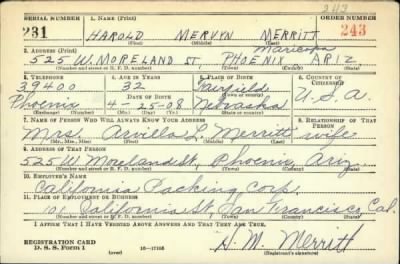 243
SERIAL NUMBER 1. NAME (Print) ORDER NUMBER
231 HAROLD MERVYN MERRITT 243
(First) (Middle) (Last)
2. ADDRESS (Print) Maricopa
525 W. MORELAND ST, PHOENIX ARIZ.
(Number and street or R. F. D. number) (Town) (County) (State)
3. TELEPHONE 4. AGE IN YEARS 5. PLACE OF BIRTH 6. COUNTRY OF CITIZENSHIP
39400 32 Fairfield
DATE OF BIRTH (Town or county)
Phoenix 4-25-08 Nebraska U.S.A.
(Exchange) (Number) (Mo.) (Day) (Yr.) (State or country)
7. NAME OF PERSON WHO WILL ALWAYS KNOW YOUR ADDRESS 8. RELATIONSHIP OF THAT PERSON
Mrs. Arvilla L. Merritt wife
(Mr., Mrs., Miss) (First) (Middle) (Last)
9. ADDRESS OF THAT PERSON
525 W Moreland St, Phoenix, Ariz.
(Number and street or R. F. D. number) (Town) (County) (State)
10. EMPLOYER'S NAME
California Packing Corp.
11. PLACE OF EMPLOYMENT OR BUSINESS
101 California St San Francisco Cal.
(Number and street or R. F. D. number) (Town) (County) (State)
I AFFIRM THAT I HAVE VERIFIED ABOVE ANSWERS AND THAT THEY ARE TRUE.
REGISTRATION CARD
D. S. S. Form 1 (over) 16—17105 H. M. Merritt
(Registrant's signature)